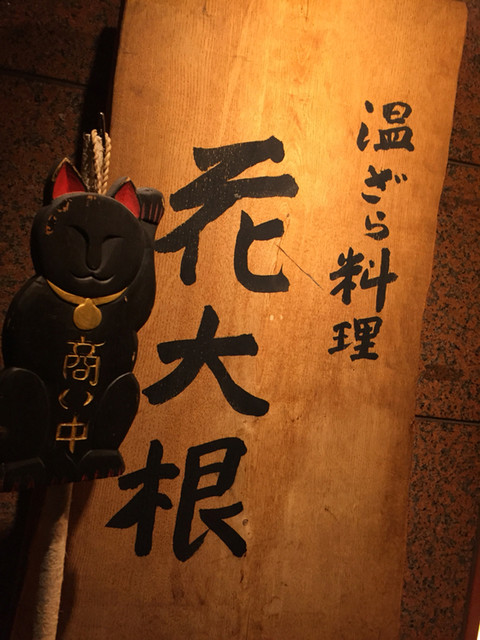 温ざら料理
花大根
商い中